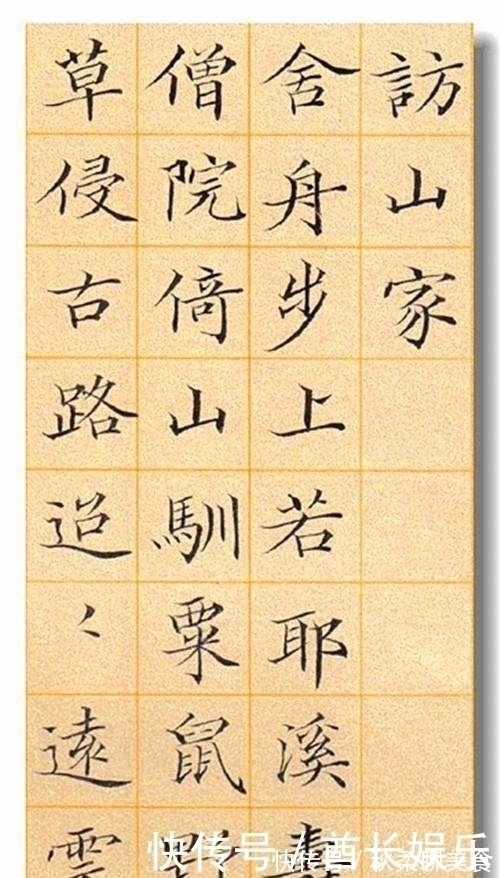 訪山家
舍舟步上若耶溪
僧院倚山馴粟鼠
草侵古路迢〻遠
快传号 / 酋长娱乐
快传号